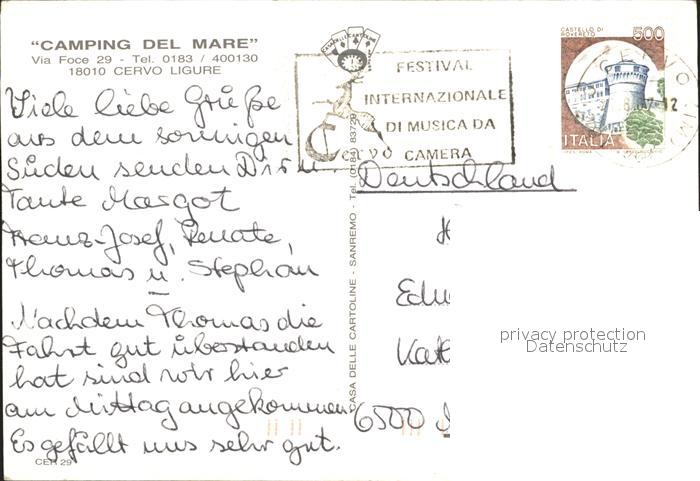 "CAMPING DEL MARE"
Via Foce 29 - Tel. 0183 / 400130
18010 CERVO LIGURE
CASABELLE CARTOLINE
FESTIVAL
INTERNAZIONALE
DI MUSICA DA
Cervo CAMERA
CASTELLO DI
ROVERETO
500
ITALIA
Viele liebe Grüße
aus dem sonnigen
Süden senden Dir u.
Tante Margot
Franz-Josef, Renate,
Thomas u. Stephan
Nachdem Thomas die
Fahrt gut überstanden
hat sind wir hier
am Mittag angekommen.
Es gefällt uns sehr gut.
CER 29
CASA DELLE CARTOLINE - SANREMO - Tel. (0184) 83729
Deutschland
Edu
Kat
6500
privacy protection
Datenschutz